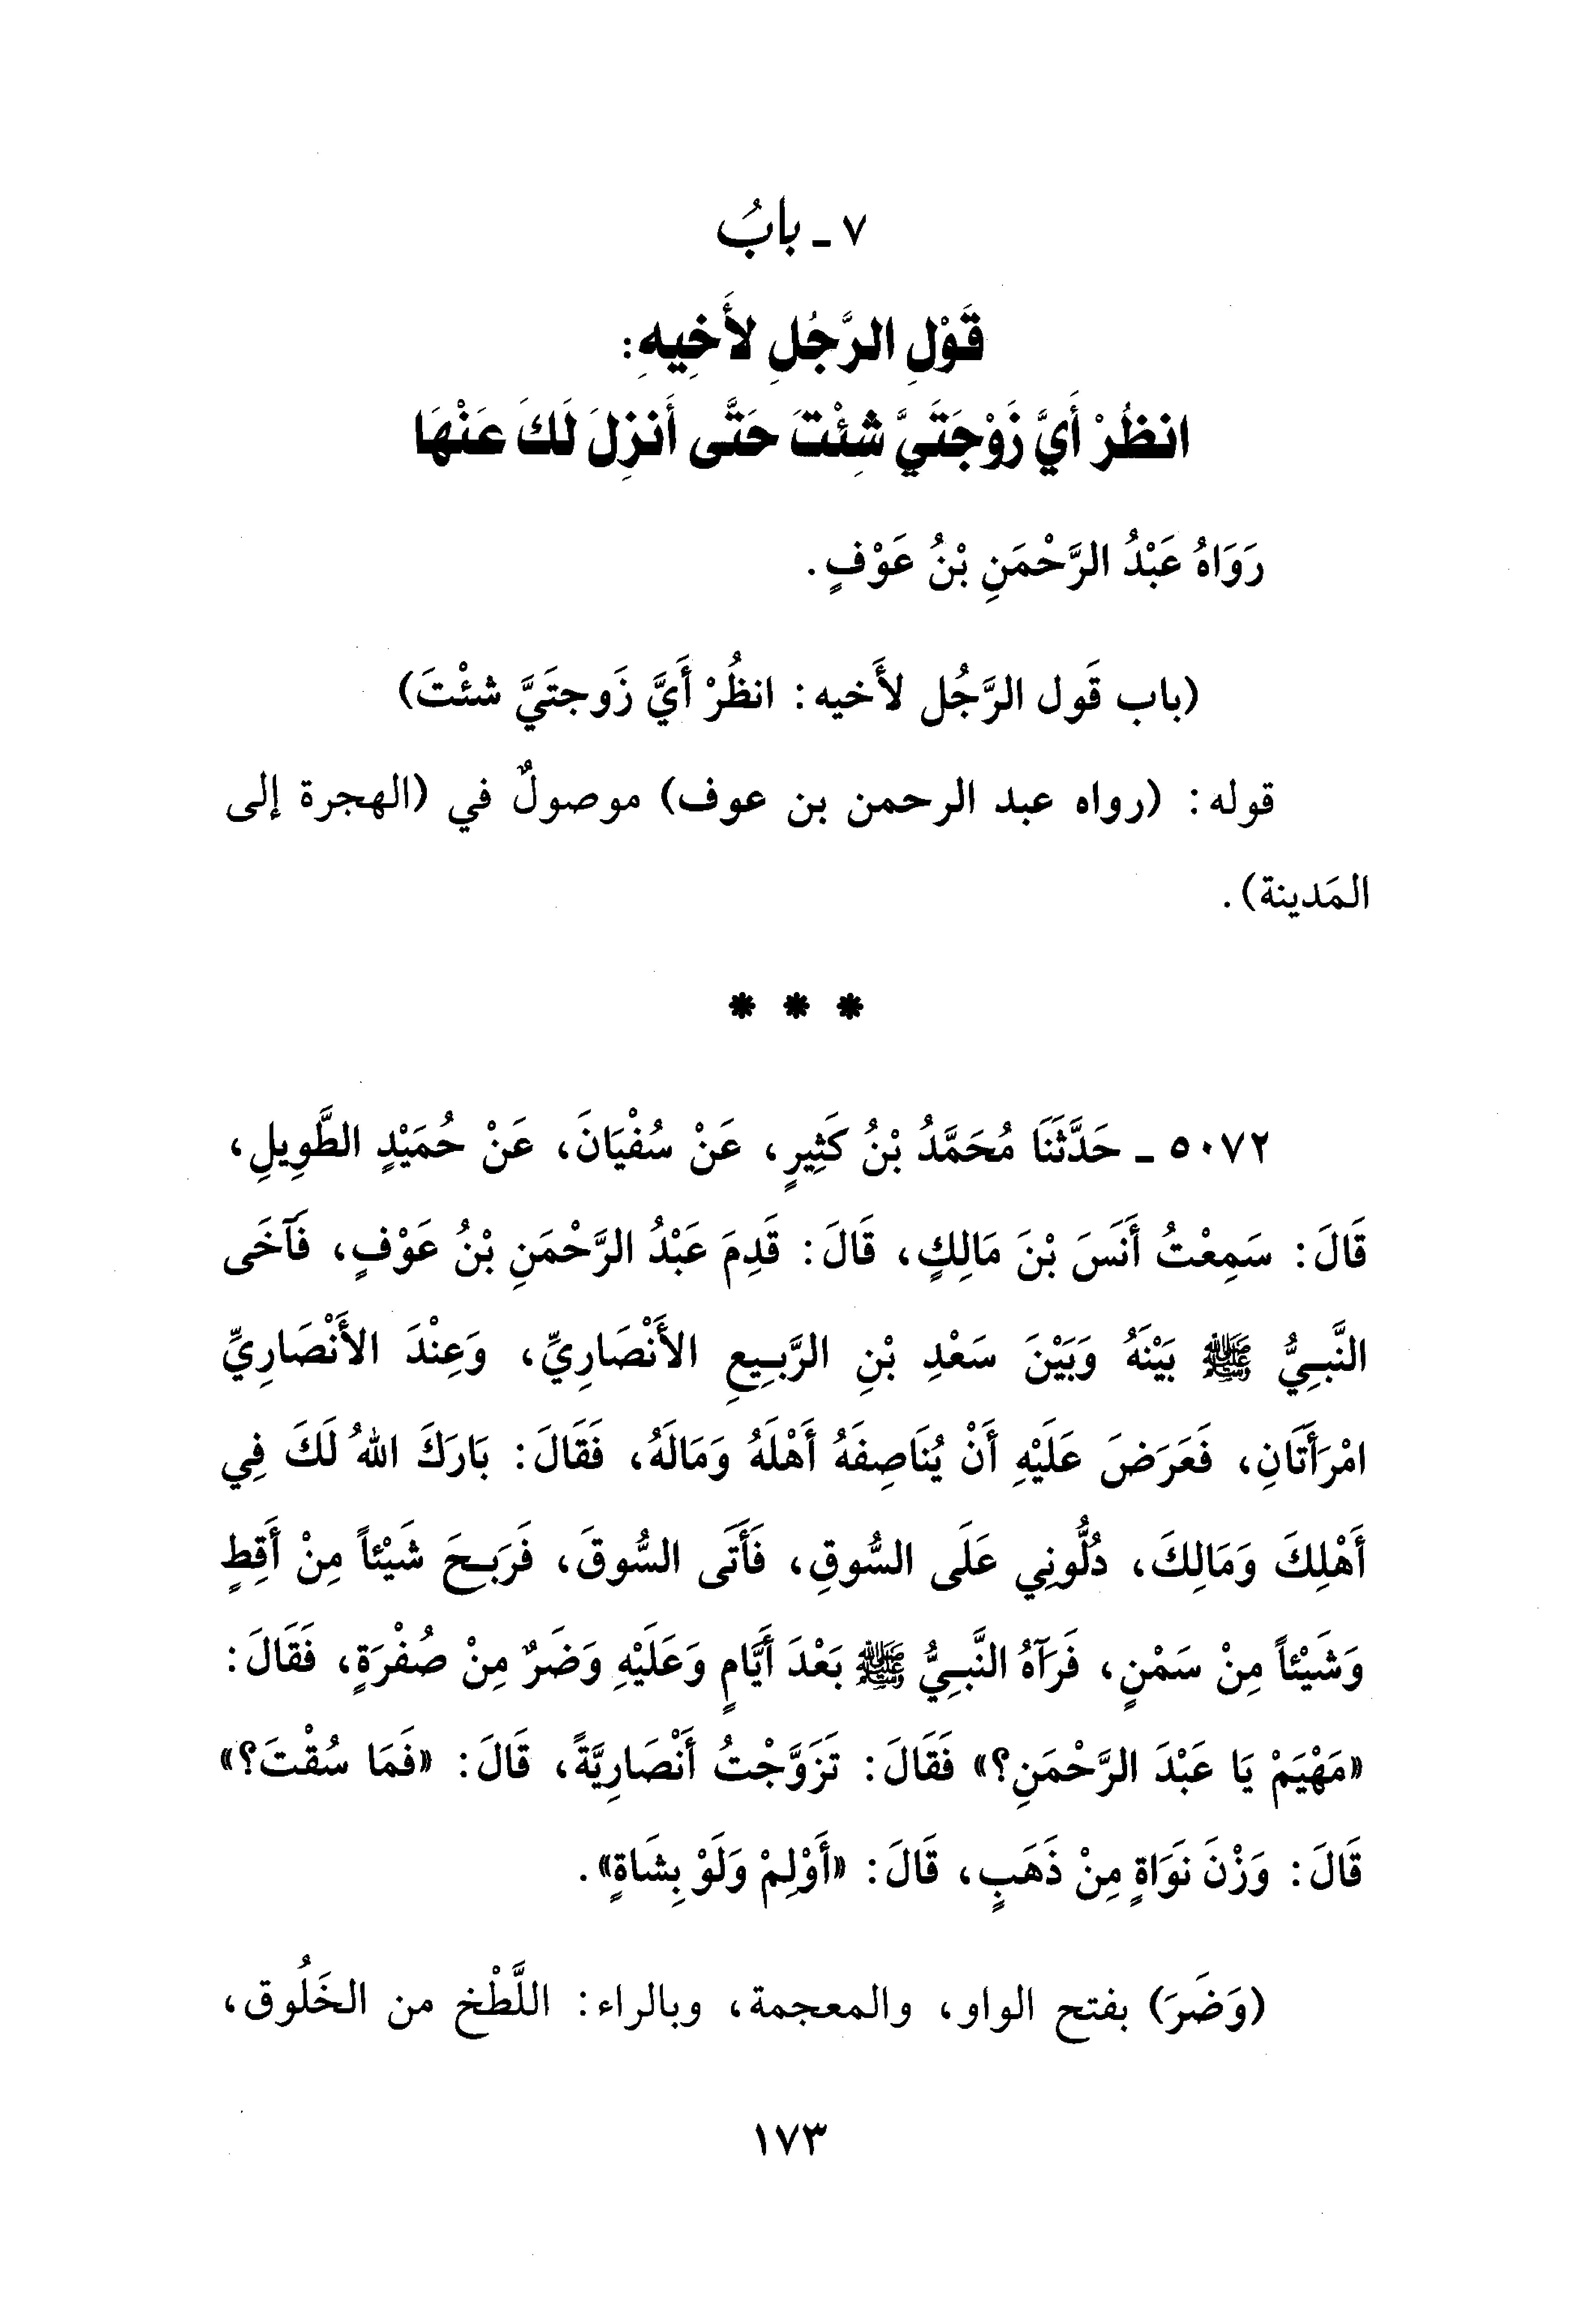 ٧ ـ بابُ
قَوْلِ الرَّجُلِ لأَخِيهِ:
انظُرْ أَيَّ زَوْجَتَيَّ شِئْتَ حَتَّى أَنزِلَ لَكَ عَنْهَا
رَوَاهُ عَبْدُ الرَّحْمَنِ بْنُ عَوْفٍ.
(باب قَول الرَّجُل لأَخيه: انظُرْ أَيَّ زَوجتَيَّ شئْتَ)
قوله: (رواه عبد الرحمن بن عوف) موصولٌ في (الهجرة إلى
المَدينة).
* * *
٥٠٧٢ ـ حَدَّثَنَا مُحَمَّدُ بْنُ كَثِيرٍ، عَنْ سُفْيَانَ، عَنْ حُمَيْدٍ الطَّوِيلِ،
قَالَ: سَمِعْتُ أَنَسَ بْنَ مَالِكٍ، قَالَ: قَدِمَ عَبْدُ الرَّحْمَنِ بْنُ عَوْفٍ، فَآخَى
النَّبِيُّ ﷺ بَيْنَهُ وَبَيْنَ سَعْدِ بْنِ الرَّبِيعِ الأَنْصَارِيِّ، وَعِنْدَ الأَنْصَارِيِّ
امْرَأَتَانِ، فَعَرَضَ عَلَيْهِ أَنْ يُنَاصِفَهُ أَهْلَهُ وَمَالَهُ، فَقَالَ: بَارَكَ اللهُ لَكَ فِي
أَهْلِكَ وَمَالِكَ، دُلُّونِي عَلَى السُّوقِ، فَأَتَى السُّوقَ، فَرَبِحَ شَيْئاً مِنْ أَقِطٍ
وَشَيْئاً مِنْ سَمْنٍ، فَرَآهُ النَّبِيُّ ﷺ بَعْدَ أَيَّامٍ وَعَلَيْهِ وَضَرٌ مِنْ صُفْرَةٍ، فَقَالَ:
«مَهْيَمْ يَا عَبْدَ الرَّحْمَنِ؟» فَقَالَ: تَزَوَّجْتُ أَنْصَارِيَّةً، قَالَ: «فَمَا سُقْتَ؟»
قَالَ: وَزْنَ نَوَاةٍ مِنْ ذَهَبٍ، قَالَ: «أَوْلِمْ وَلَوْ بِشَاةٍ».
(وَضَرَ) بفتح الواو، والمعجمة، وبالراء: اللَّطْخ من الخَلُوق،
١٧٣